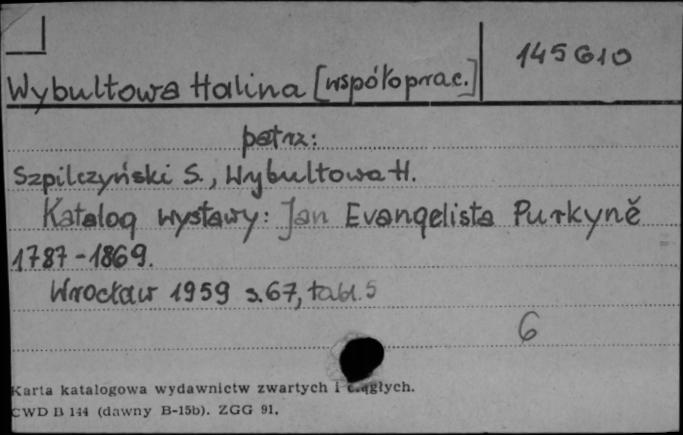 145610
Wybultowa Halina [współoprac.]
patrz:
Szpilczyński S., Wybultowa H.
Katalog wystawy: Jan Evangelista Purkyně
1787-1869.
Wrocław 1959 s.67, tabl.5
6
Karta katalogowa wydawnictw zwartych i ciągłych.
CWD B 144 (dawny B-15b). ZGG 91.